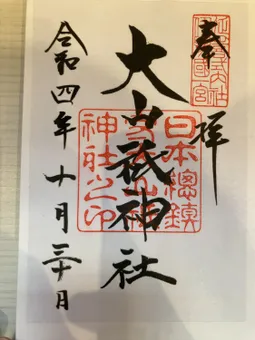 奉拝
大山祇神社
令和四年十月三十日
日本總鎮
守大山祇
神社之印